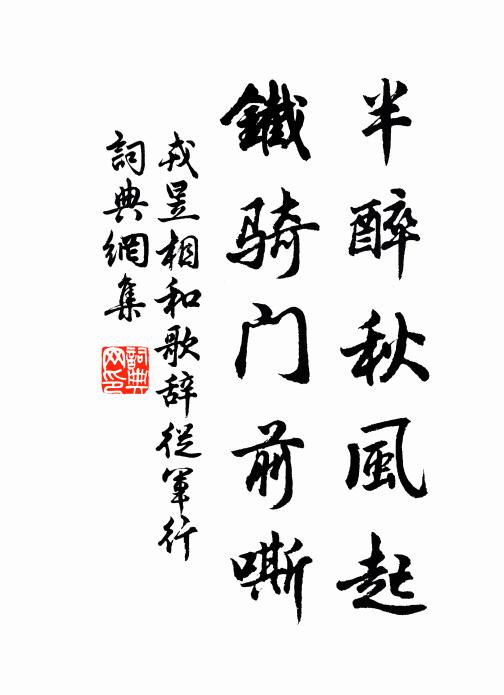 半醉秋風起
鐵骑门前嘶
戎昱相和歌辞從軍行
詞典網集
詞典网印